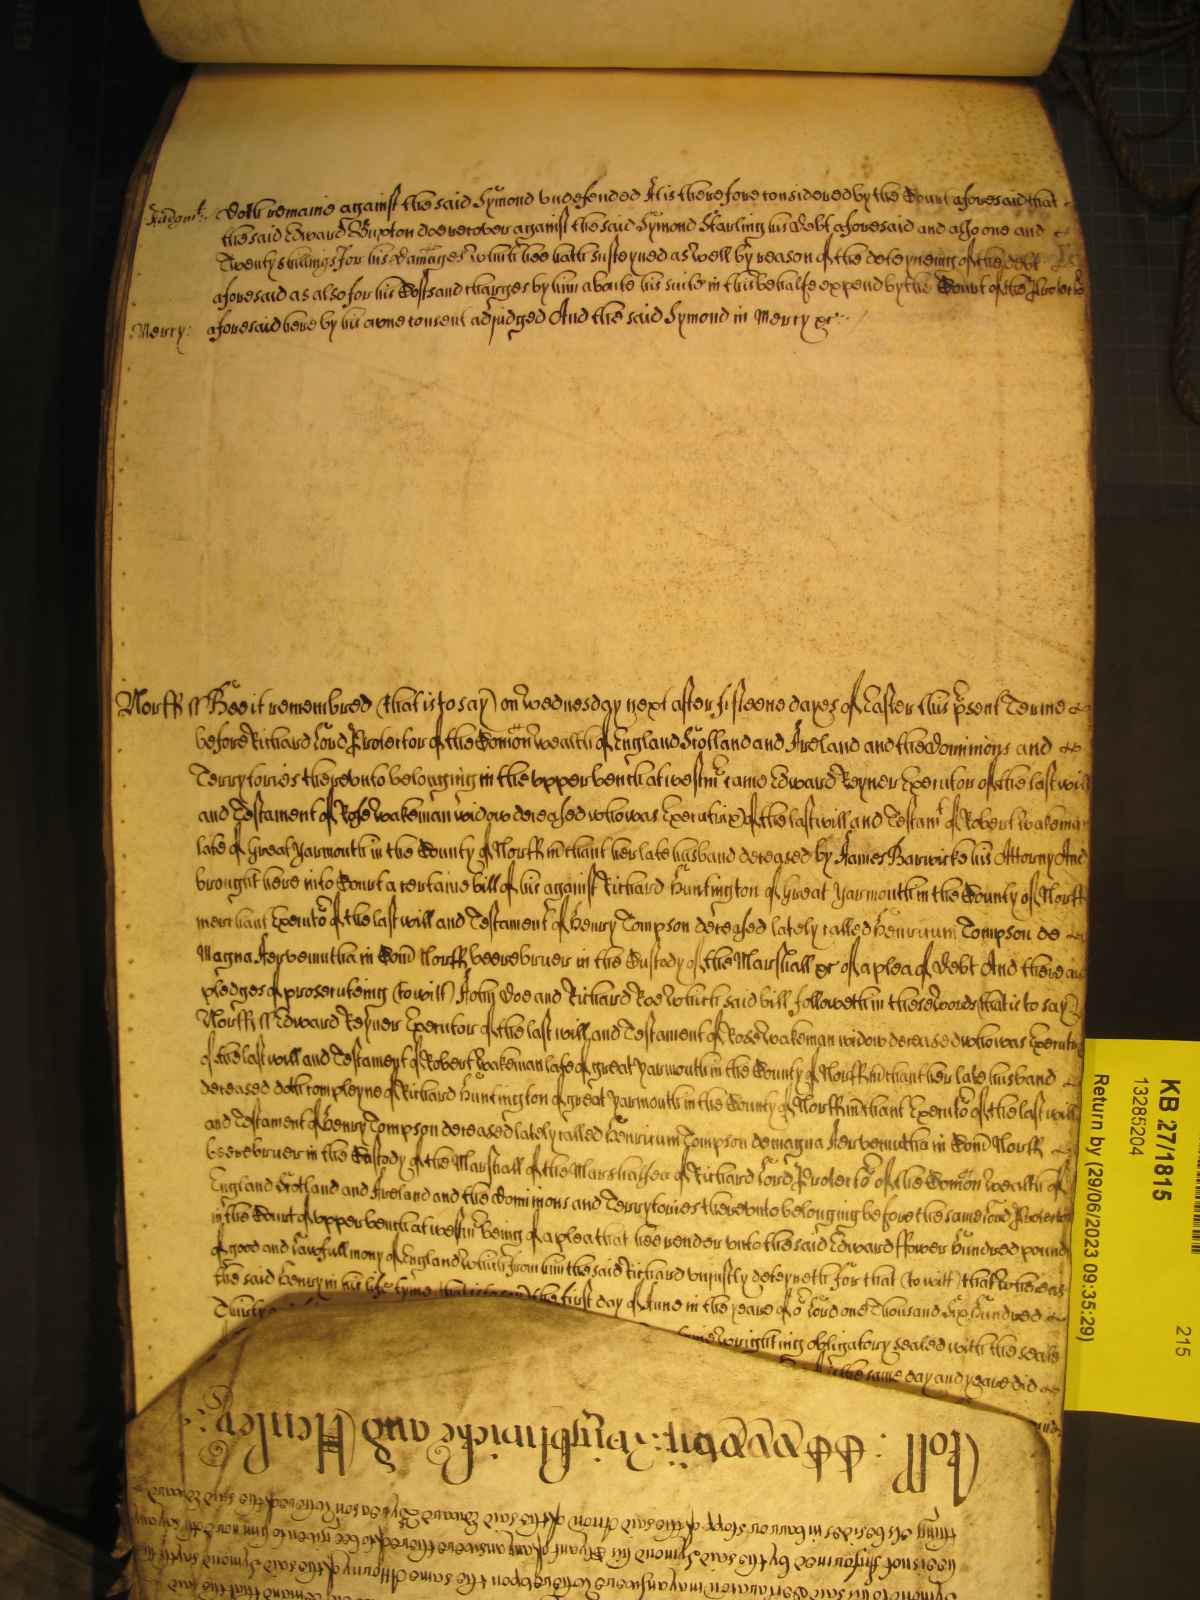 Judgmt: doth remaine against the said Symond undefended It is therefore considered by the Court aforesaid that
the said Edward Buxton doe recover against the said Symond Starling his debt aforesaid and also one and
Twenty shillings for his damages which hee hath susteyned as well by reason of the deteyneing of the debt
aforesaid as also for his Costs and charges by him about his suite in this behalfe expend by the Court of the Protector
Mercy: aforesaid here by his owne consent adjudged And the said Symond in Mercy &c:
Norff ss Bee it remembred (that is to say) on wednesday next after fifteene dayes of Easter this psent Terme
before Richard Lord Protector of the Comon wealth of England Scotland and Ireland and the dominions and
Terrytories thereunto belonging in the upper bench at westmr came Edward Reyner Executor of the last will
and Testament of Rose wakeman widow deceased who was Executrix of the last will and Testamt of Robert wakeman
late of Great Yarmouth in the County of Norff mchant her late husband deceased by James Barwicke his Attorny And
brought here into Court a certaine bill of his against Richard Huntington of great Yarmouth in the County of Norff
merchant Executor of the last will and Testament of Henry Tompson deceased lately called Henricum Tompson de
Magna Jernemutha in Com Norff beerebruer in the Custody of the Marshall &c of a plea of debt And there are
pledges of prosecuteing (to witt) John Doe and Richard Roe which said bill followeth in these words (that is to say)
Norff ss Edward Reyner Executor of the last will and Testament of Rose wakeman widow deceased who was Executrix
of the last will and Testament of Robert wakeman late of great Yarmouth in the County of Norff mchant her late husband
deceased doth compleyne of Richard Huntington of great Yarmouth in the County of Norff mchant Executor of the last will
and Testament of Henry Tompson deceased lately called Henricum Tompson de magna Jernemutha in Com Norff
beerebruer in the Custody of the Marshall of the Marshalsea of Richard Lord Protector of the Comon wealth of
England Scotland and Ireland and the dominions and Terrytories thereunto belonging before the same Lord Protector
in the Court of upper bench at westmr being of a plea that hee render unto the said Edward ffower hundred pounds
of good and lawfull mony of England which from him the said Richard unjustly deteyneth for that (to witt) that whereas
the said Henry in his life tyme that is to say the first day of June in the yeare of or Lord one Thousand six hundred
Thirty and
wrighting obligatory sealed with the seale
the same day and yeare did
Roll: wrightwicke and Henley:
KB 27/1815
13285204
Return by (29/06/2023 09:35:29)
215